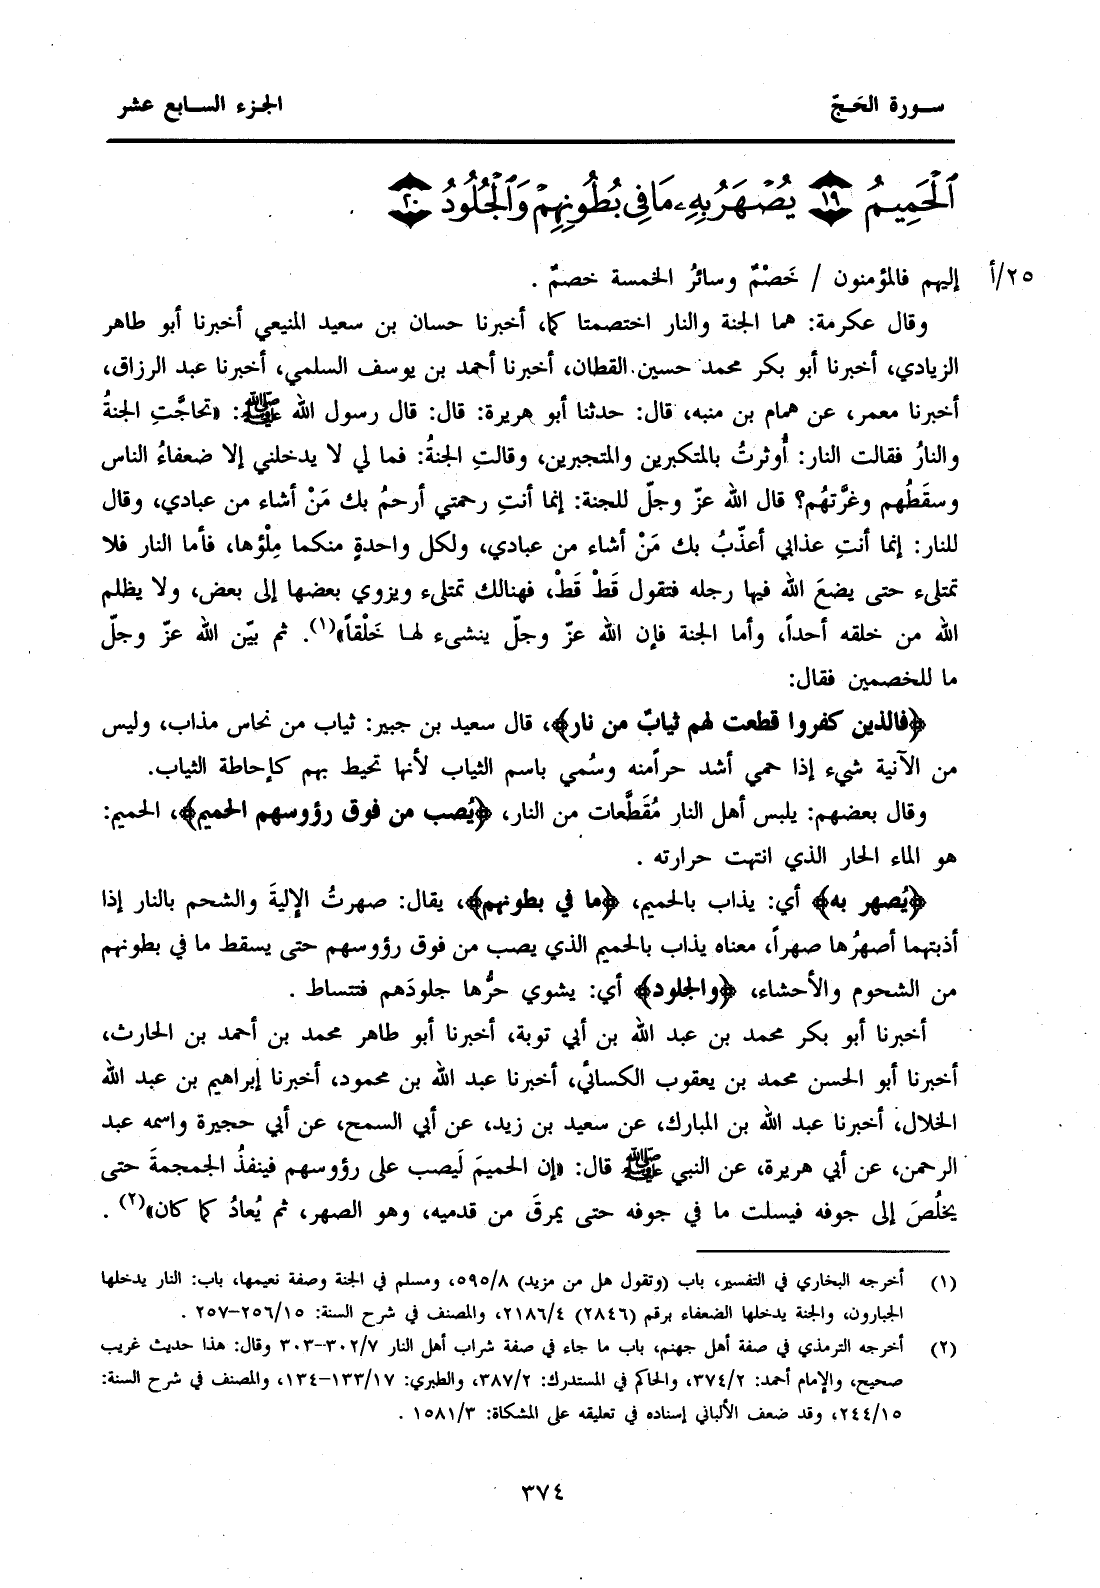 سورة الحَجّ الجزء السابع عشر
ٱلْحَمِيمُ ﴿١٩﴾ يُصْهَرُ بِهِۦ مَا فِي بُطُونِهِمْ وَٱلْجُلُودُ ﴿٢٠﴾
٢٥/أ إليهم فالمؤمنون / خَصْمٌ وسائرُ الخمسة خصمٌ .
وقال عكرمة: هما الجنة والنار اختصمتا كما، أخبرنا حسان بن سعيد المنيعي أخبرنا أبو طاهر
الزيادي، أخبرنا أبو بكر محمد حسين القطان، أخبرنا أحمد بن يوسف السلمي، أخبرنا عبد الرزاق،
أخبرنا معمر، عن همام بن منبه، قال: حدثنا أبو هريرة: قال: قال رسول الله ﷺ: «تحاجَّتِ الجنةُ
والنارُ فقالت النار: أُوثرتُ بالمتكبرين والمتجبرين، وقالتِ الجنةُ: فما لي لا يدخلني إلا ضعفاءُ الناس
وسقَطُهم وغرَّتهُم؟ قال الله عزّ وجلّ للجنة: إنما أنتِ رحمتي أرحمُ بك مَنْ أشاء من عبادي، وقال
للنار: إنما أنتِ عذابي أعذّبُ بك مَنْ أشاء من عبادي، ولكل واحدةٍ منكما مِلْؤها، فأما النار فلا
تمتلىء حتى يضعَ الله فيها رجله فتقول قَطْ قَطْ، فهنالك تمتلىء ويزوي بعضها إلى بعض، ولا يظلم
الله من خلقه أحداً، وأما الجنة فإن الله عزّ وجلّ ينشىء لها خَلْقاً»(١). ثم بيّن الله عزّ وجلّ
ما للخصمين فقال:
﴿فالذين كفروا قطعت لهم ثيابٌ من نار﴾، قال سعيد بن جبير: ثياب من نحاس مذاب، وليس
من الآنية شيء إذا حمي أشد حراًمنه وسُمي باسم الثياب لأنها تحيط بهم كإحاطة الثياب.
وقال بعضهم: يلبس أهل النار مُقَطَّعات من النار، ﴿يُصب من فوق رؤوسهم الحميم﴾، الحميم:
هو الماء الحار الذي انتهت حرارته .
﴿يُصهر به﴾ أي: يذاب بالحميم، ﴿ما في بطونهم﴾، يقال: صهرتُ الإليةَ والشحم بالنار إذا
أذبتهما أصهرُها صهراً، معناه يذاب بالحميم الذي يصب من فوق رؤوسهم حتى يسقط ما في بطونهم
من الشحوم والأحشاء، ﴿والجلود﴾ أي: يشوي حرُّها جلودَهم فتتساط .
أخبرنا أبو بكر محمد بن عبد الله بن أبي توبة، أخبرنا أبو طاهر محمد بن أحمد بن الحارث،
أخبرنا أبو الحسن محمد بن يعقوب الكسائي، أخبرنا عبد الله بن محمود، أخبرنا إبراهيم بن عبد الله
الخلال، أخبرنا عبد الله بن المبارك، عن سعيد بن زيد، عن أبي السمح، عن أبي حجيرة واسمه عبد
الرحمن، عن أبي هريرة، عن النبي ﷺ قال: «إن الحميمَ لَيصب على رؤوسهم فينفذُ الجمجمةَ حتى
يخلُصَ إلى جوفه فيسلت ما في جوفه حتى يمرقَ من قدميه، وهو الصهر، ثم يُعادُ كما كان»(٢) .
(١) أخرجه البخاري في التفسير، باب (وتقول هل من مزيد) ٥٩٥/٨، ومسلم في الجنة وصفة نعيمها، باب: النار يدخلها
الجبارون، والجنة يدخلها الضعفاء برقم (٢٨٤٦) ٢١٨٦/٤، والمصنف في شرح السنة: ٢٥٦/١٥-٢٥٧ .
(٢) أخرجه الترمذي في صفة أهل جهنم، باب ما جاء في صفة شراب أهل النار ٣٠٢/٧-٣٠٣ وقال: هذا حديث غريب
صحيح، والإمام أحمد: ٣٧٤/٢، والحاكم في المستدرك: ٣٨٧/٢، والطبري: ١٣٣/١٧-١٣٤، والمصنف في شرح السنة:
٢٤٤/١٥، وقد ضعف الألباني إسناده في تعليقه على المشكاة: ١٥٨١/٣ .
٣٧٤